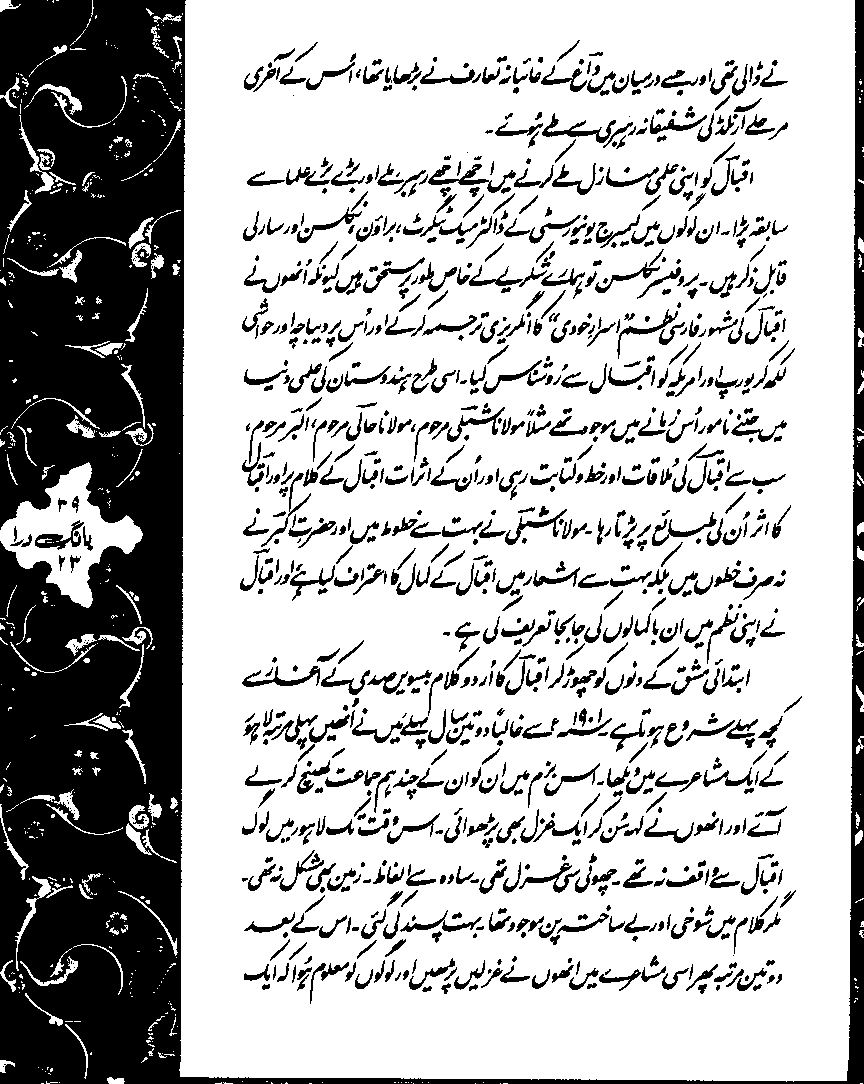 نے ڈالی تھی اور جسے درمیان میں داغؔ کے غائبانہ تعارف نے بڑھایا تھا، اُس کے آخری
مرحلے آرنلڈ کی شفیقانہ رہبری سے طے ہُوئے۔
اقبالؔ کو اپنی علمی منازل طے کرنے میں اچھّے اچھّے رہبر ملے اور بڑے بڑے علما سے
سابقہ پڑا۔ ان لوگوں میں کیمبرج یونیورسٹی کے ڈاکٹر میک ٹیگرٹ، براؤن، نکلسن اور سارلی
قابلِ ذکر ہیں۔ پروفیسر نکلسن تو ہمارے شُکریے کے خاص طور پر مستحق ہیں کیونکہ اُنھوں نے
اقبالؔ کی مشہور فارسی نظم ”اسرارِ خودی“ کا انگریزی ترجمہ کر کے اور اُس پر دیباچہ اور حواشی
لکھ کر یورپ اور امریکہ کو اقبال سے رُوشناس کیا۔ اسی طرح ہندوستان کی علمی دنیا
میں جتنے نامور اُس زمانے میں موجود تھے مثلاً مولانا شبلیؔ مرحوم، مولانا حالیؔ مرحوم، اکبرؔ مرحوم،
سب سے اقبالؔ کی مُلاقات اور خط و کتابت رہی اور اُن کے اثرات اقبالؔ کے کلام پر اور اقبالؔ
کا اثر اُن کی طبائع پر پڑتا رہا۔ مولانا شبلیؔ نے بہت سے خطوط میں اور حضرت اکبرؔ نے
نہ صرف خطوں میں بلکہ بہت سے اشعار میں اقبالؔ کے کمال کا اعتراف کیا ہے اور اقبالؔ
نے اپنی نظم میں ان باکمالوں کی جابجا تعریف کی ہے۔
ابتدائی مشق کے دنوں کو چھوڑ کر اقبالؔ کا اُردو کلام بیسویں صدی کے آغاز سے
کچھ پہلے شروع ہوتا ہے ۱۹۰۱ء سے غالباً دو تین سال پہلے میں نے اُنھیں پہلی مرتبہ لاہور
کے ایک مشاعرے میں دیکھا۔ اس بزم میں ان کو ان کے چند ہم جماعت کھینچ کر لے
آئے اور انھوں نے کہہ سُن کر ایک غزل بھی پڑھوائی۔ اس وقت تک لاہور میں لوگ
اقبالؔ سے واقف نہ تھے۔ چھوٹی سی غزل تھی۔ سادہ سے الفاظ۔ زمین بھی مشکل نہ تھی۔
مگر کلام میں شوخی اور بے ساختہ پن موجود تھا۔ بہت پسند کی گئی۔ اس کے بعد
دو تین مرتبہ پھر اسی مشاعرے میں انھوں نے غزلیں پڑھیں اور لوگوں کو معلوم ہُوا کہ ایک
۳۹
بانگِ درا
۲۳